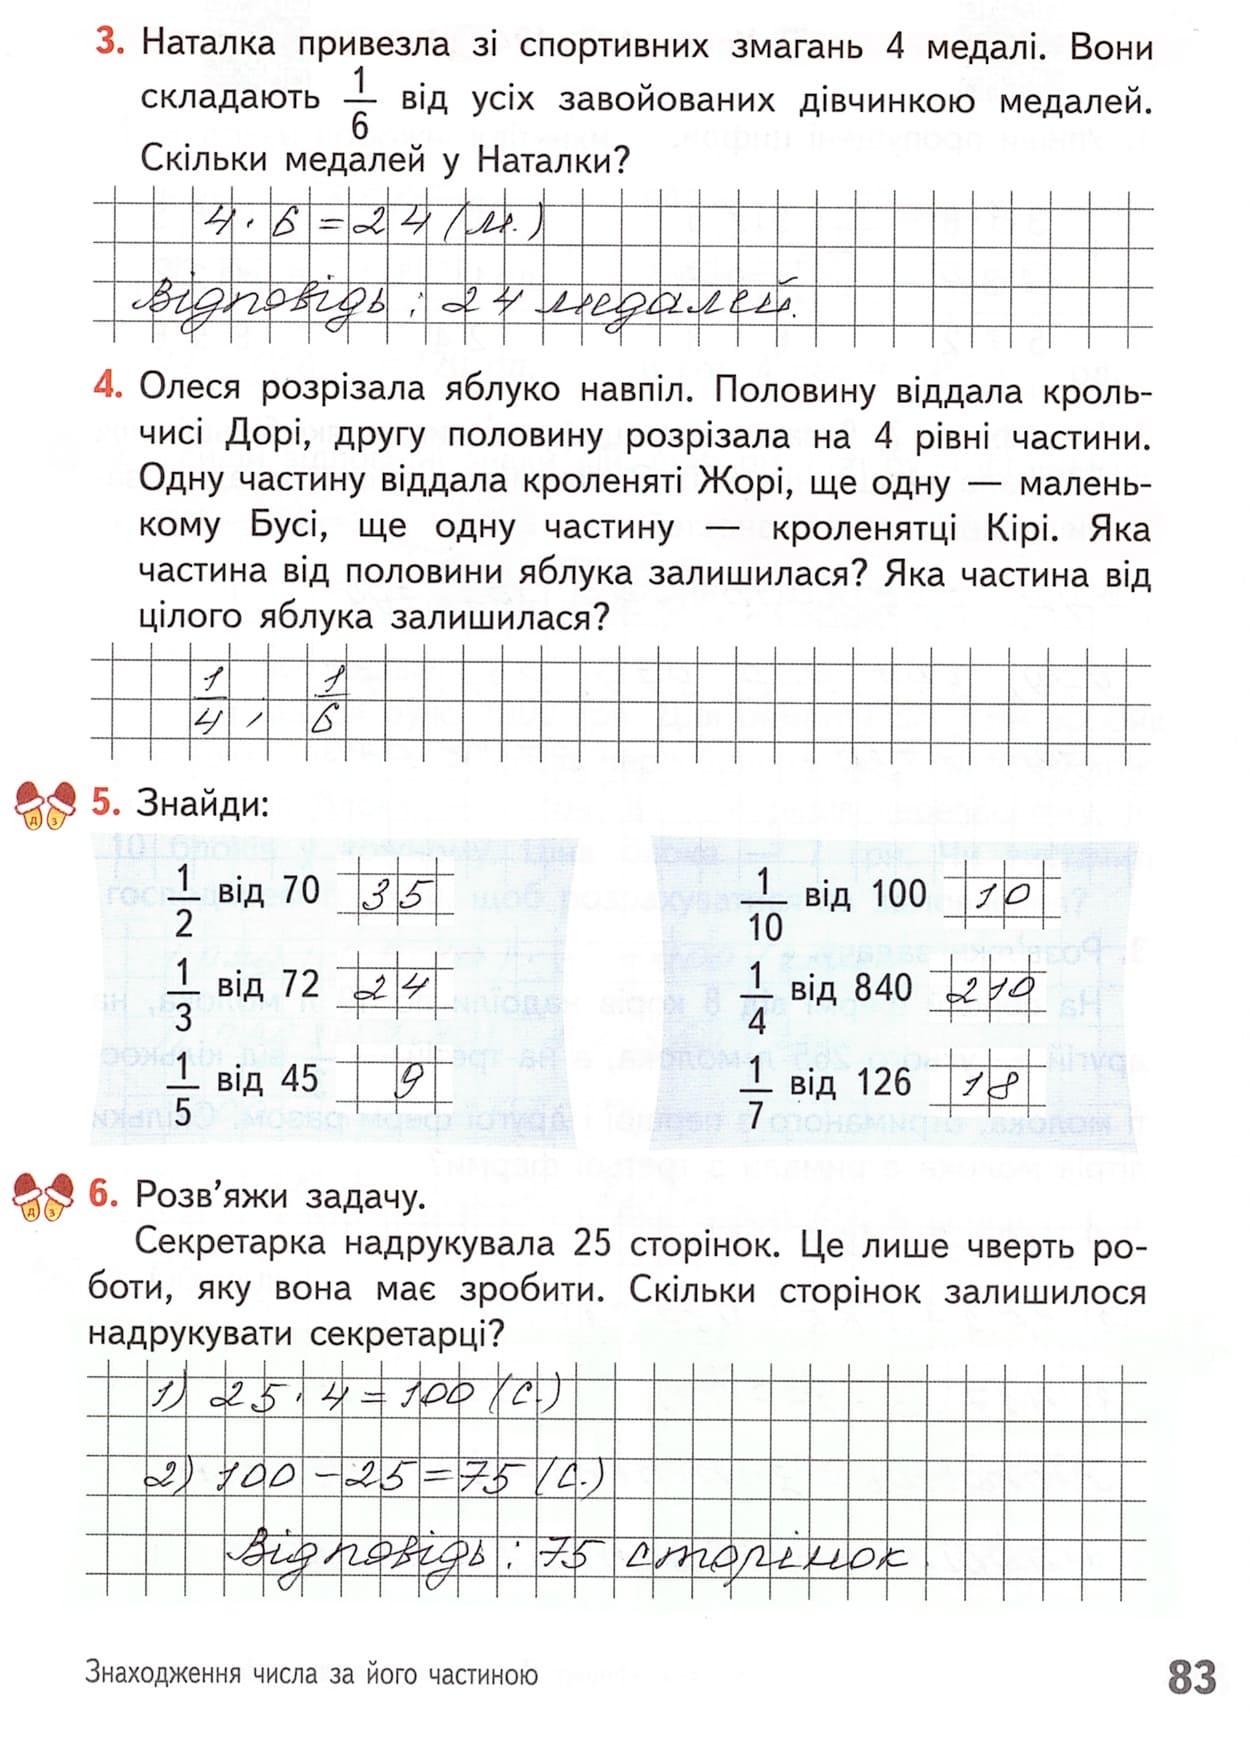 3. Наталка привезла зі спортивних змагань 4 медалі. Вони
складають 1/6 від усіх завойованих дівчинкою медалей.
Скільки медалей у Наталки?
4 · 6 = 24 (м.)
Відповідь : 24 медалей.
4. Олеся розрізала яблуко навпіл. Половину віддала кроль-
чисі Дорі, другу половину розрізала на 4 рівні частини.
Одну частину віддала кроленяті Жорі, ще одну — малень-
кому Бусі, ще одну частину — кроленятці Кірі. Яка
частина від половини яблука залишилася? Яка частина від
цілого яблука залишилася?
1/4 , 1/6
д з
5. Знайди:
1/2 від 70 35
1/3 від 72 24
1/5 від 45 9
1/10 від 100 10
1/4 від 840 210
1/7 від 126 18
д з
6. Розв'яжи задачу.
Секретарка надрукувала 25 сторінок. Це лише чверть ро-
боти, яку вона має зробити. Скільки сторінок залишилося
надрукувати секретарці?
1) 25 · 4 = 100 (с.)
2) 100 – 25 = 75 (с.)
Відповідь : 75 сторінок.
Знаходження числа за його частиною
83